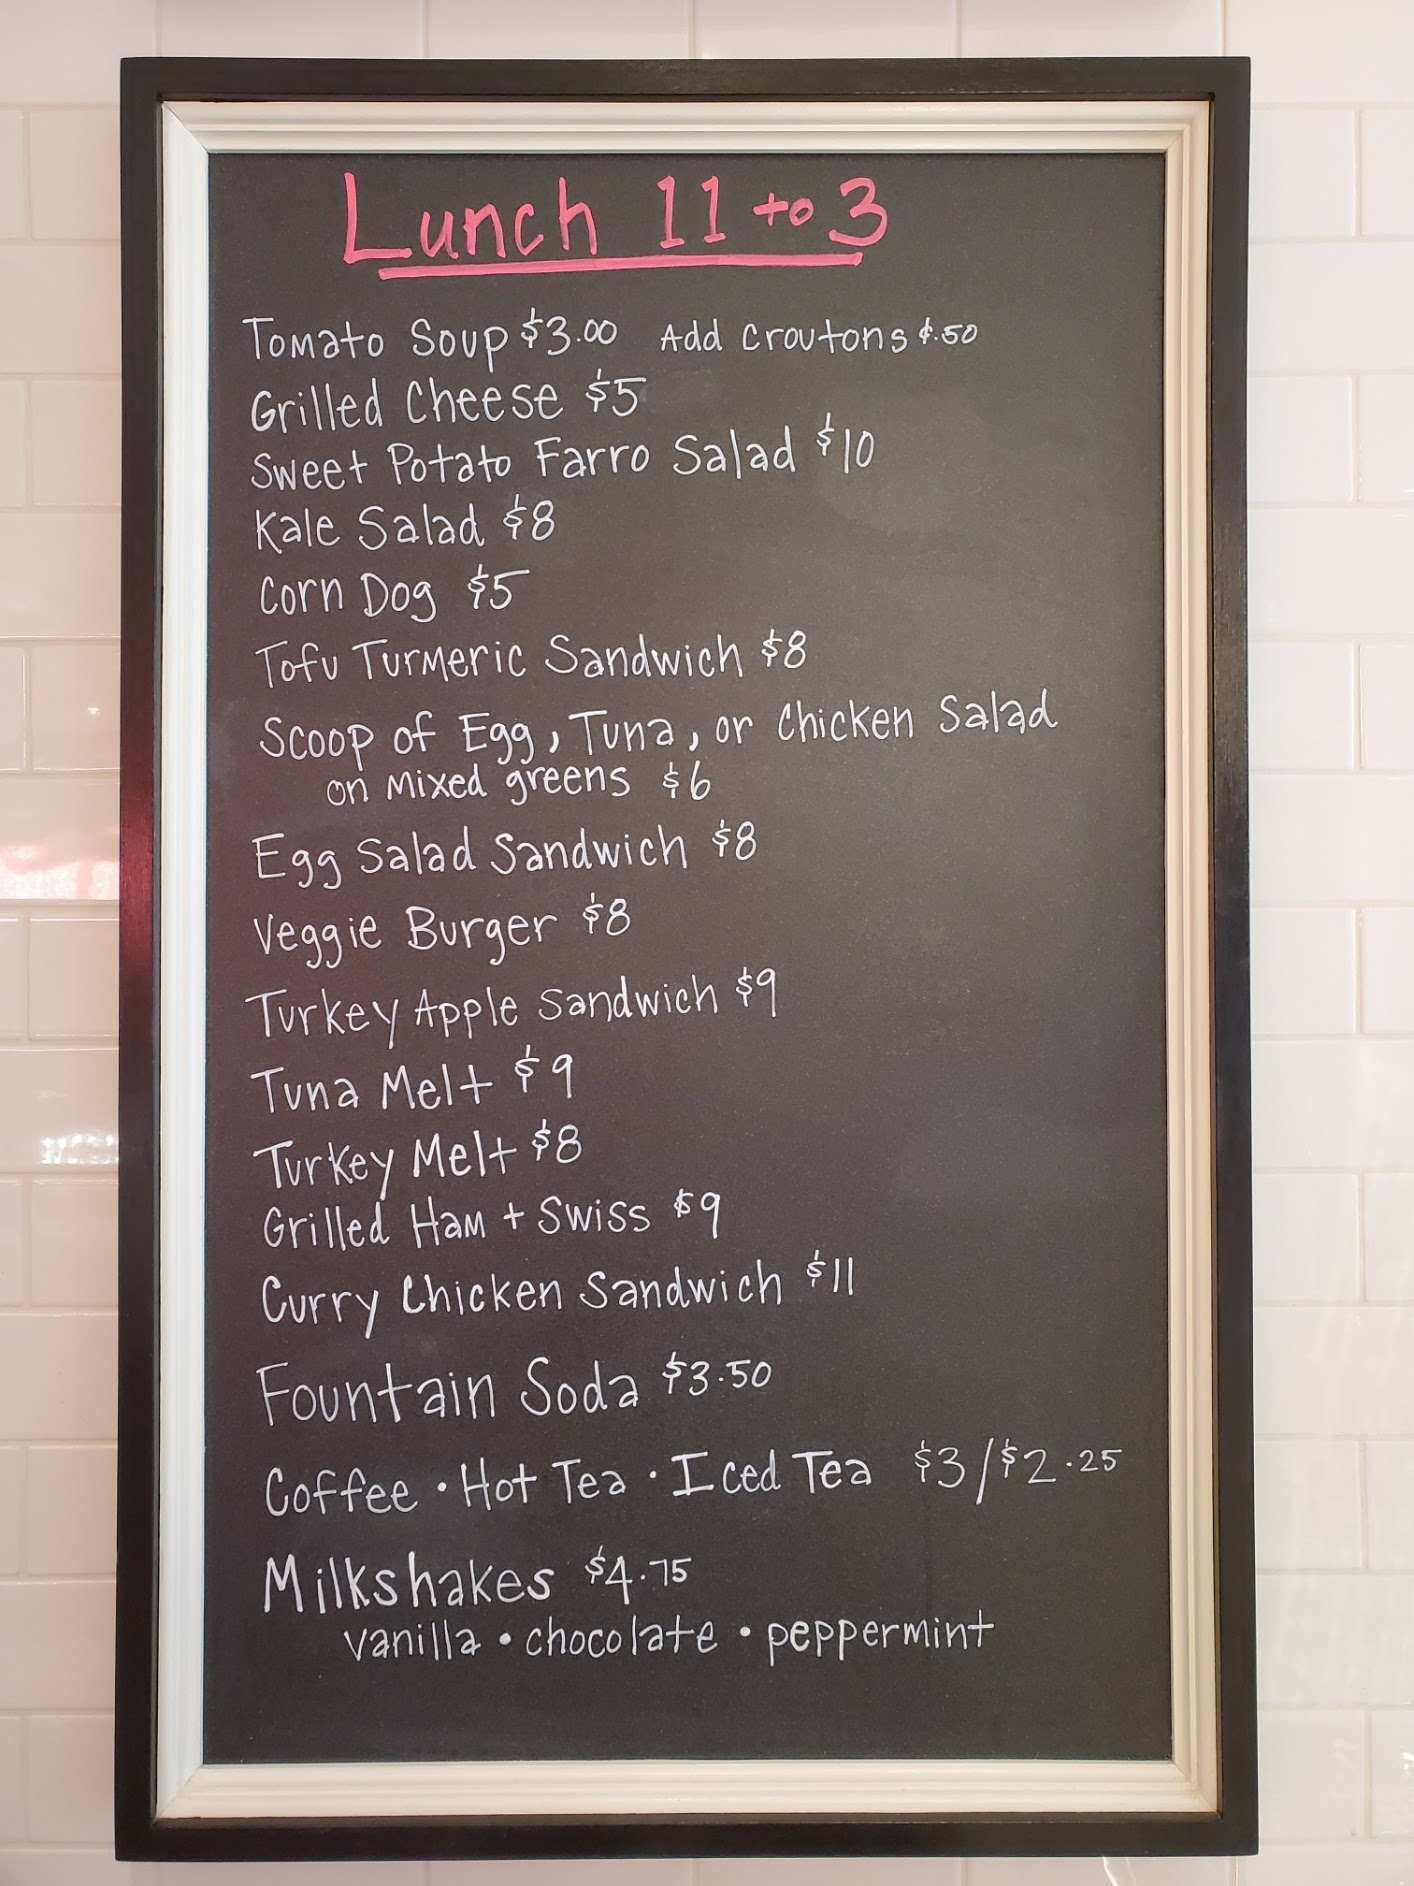 Lunch 11 to 3
Tomato Soup $3.00 Add Croutons $.50
Grilled Cheese $5
Sweet Potato Farro Salad $10
Kale Salad $8
Corn Dog $5
Tofu Turmeric Sandwich $8
Scoop of Egg, Tuna, or Chicken Salad
on mixed greens $6
Egg Salad Sandwich $8
Veggie Burger $8
Turkey Apple Sandwich $9
Tuna Melt $9
Turkey Melt $8
Grilled Ham + Swiss $9
Curry Chicken Sandwich $11
Fountain Soda $3.50
Coffee • Hot Tea • Iced Tea $3/$2.25
Milkshakes $4.75
vanilla • chocolate • peppermint